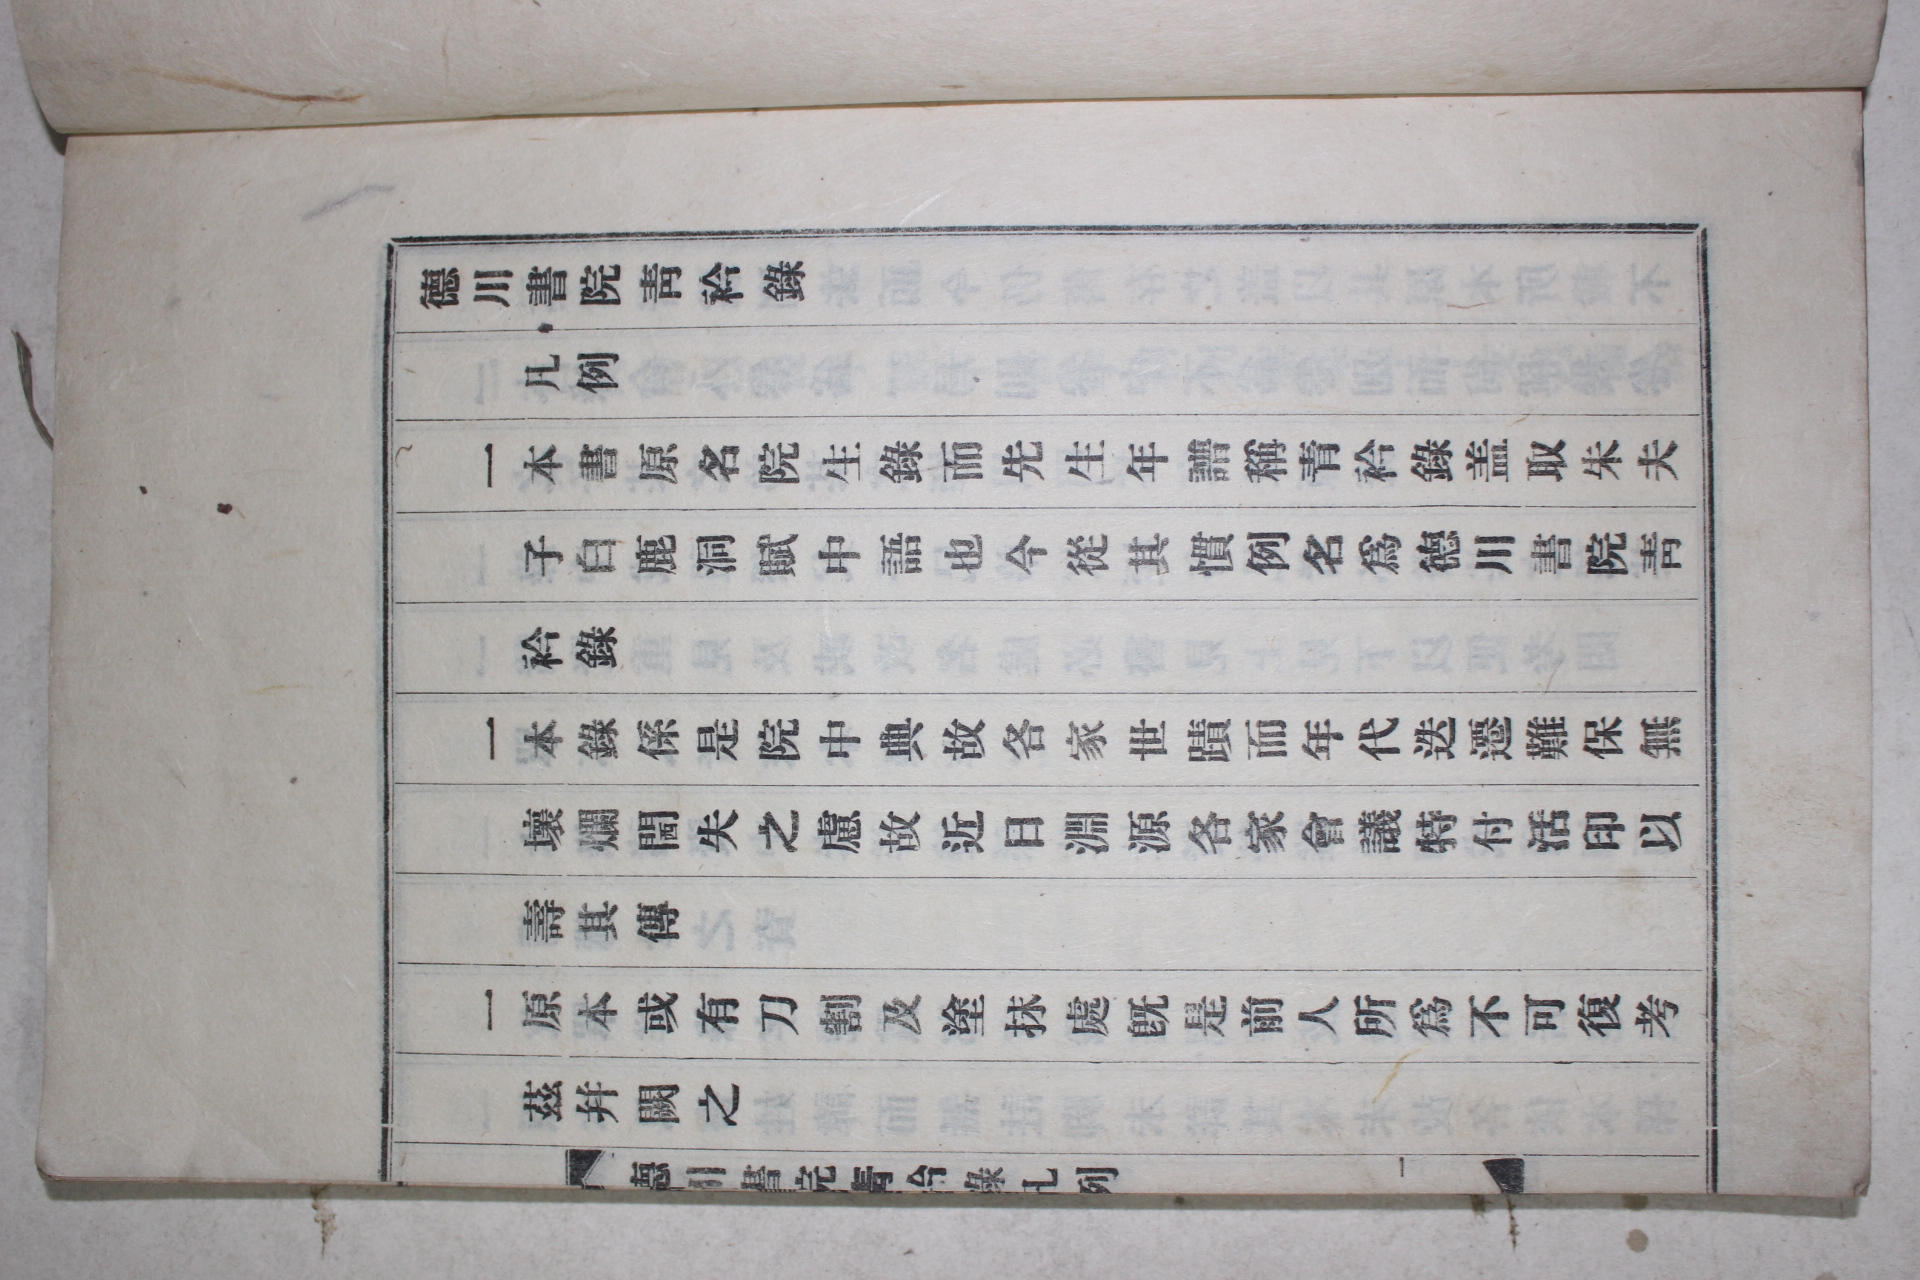 德川書院靑衿錄
凡例
一本書原名院生錄而先生年譜稱靑衿錄盖取朱夫
子白鹿洞賦中語也今從其慣例名爲德川書院靑
衿錄
一本錄係是院中典故各家世蹟而年代迭遷難保無
壞爛閪失之慮故近日淵源各家會議特付活印以
壽其傳
一原本或有刀割及塗抹處旣是前人所爲不可復考
茲幷闕之
德川書院靑衿錄凡例
一